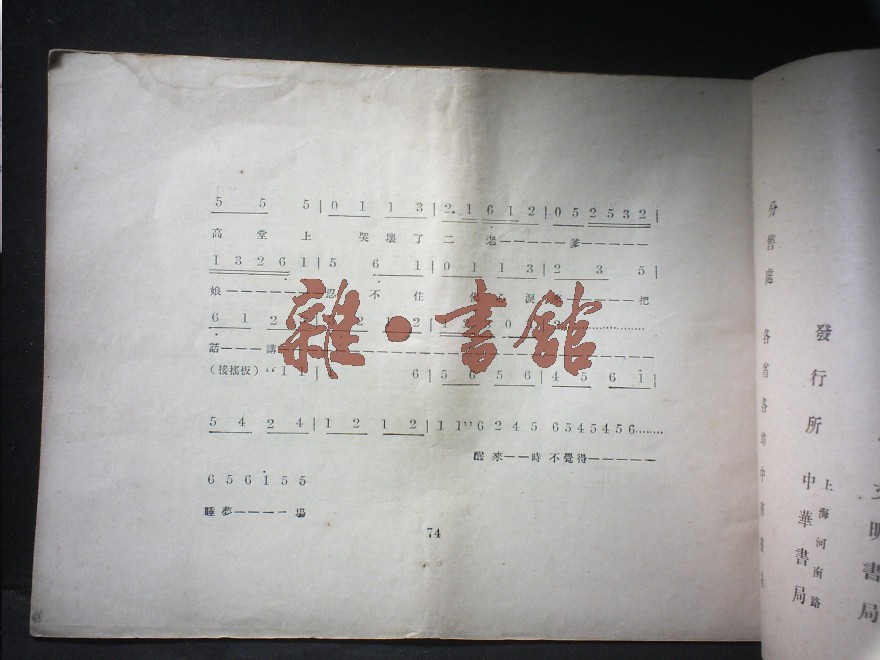 5 5 5 | 0 1 1 3 | 2. 1 6 1 2 | 0 5 2 5 3 2 |
高 堂 上 哭 壞 了 二 老—————爹————
1 3 2 6 1 | 5 6 1 | 0 1 1 3 | 2 3 5 |
娘———————忍 不 住 淚 把
6 1 2
話———講
(接搖板) “1 1 | 6 | 5 6 5 6 | 4 5 6 i |
5 4 2 4 | 1 2 1 2 | 1 1” 6 2 4 5 6 5 4 5 4 5 6........
醒 來——時 不 覺 得—————
6 5 6 i 5 5
睡 夢————塲
74
雜·書館
分售處 各省各埠中華書局
發行所 中華書局
上海河南路
書局